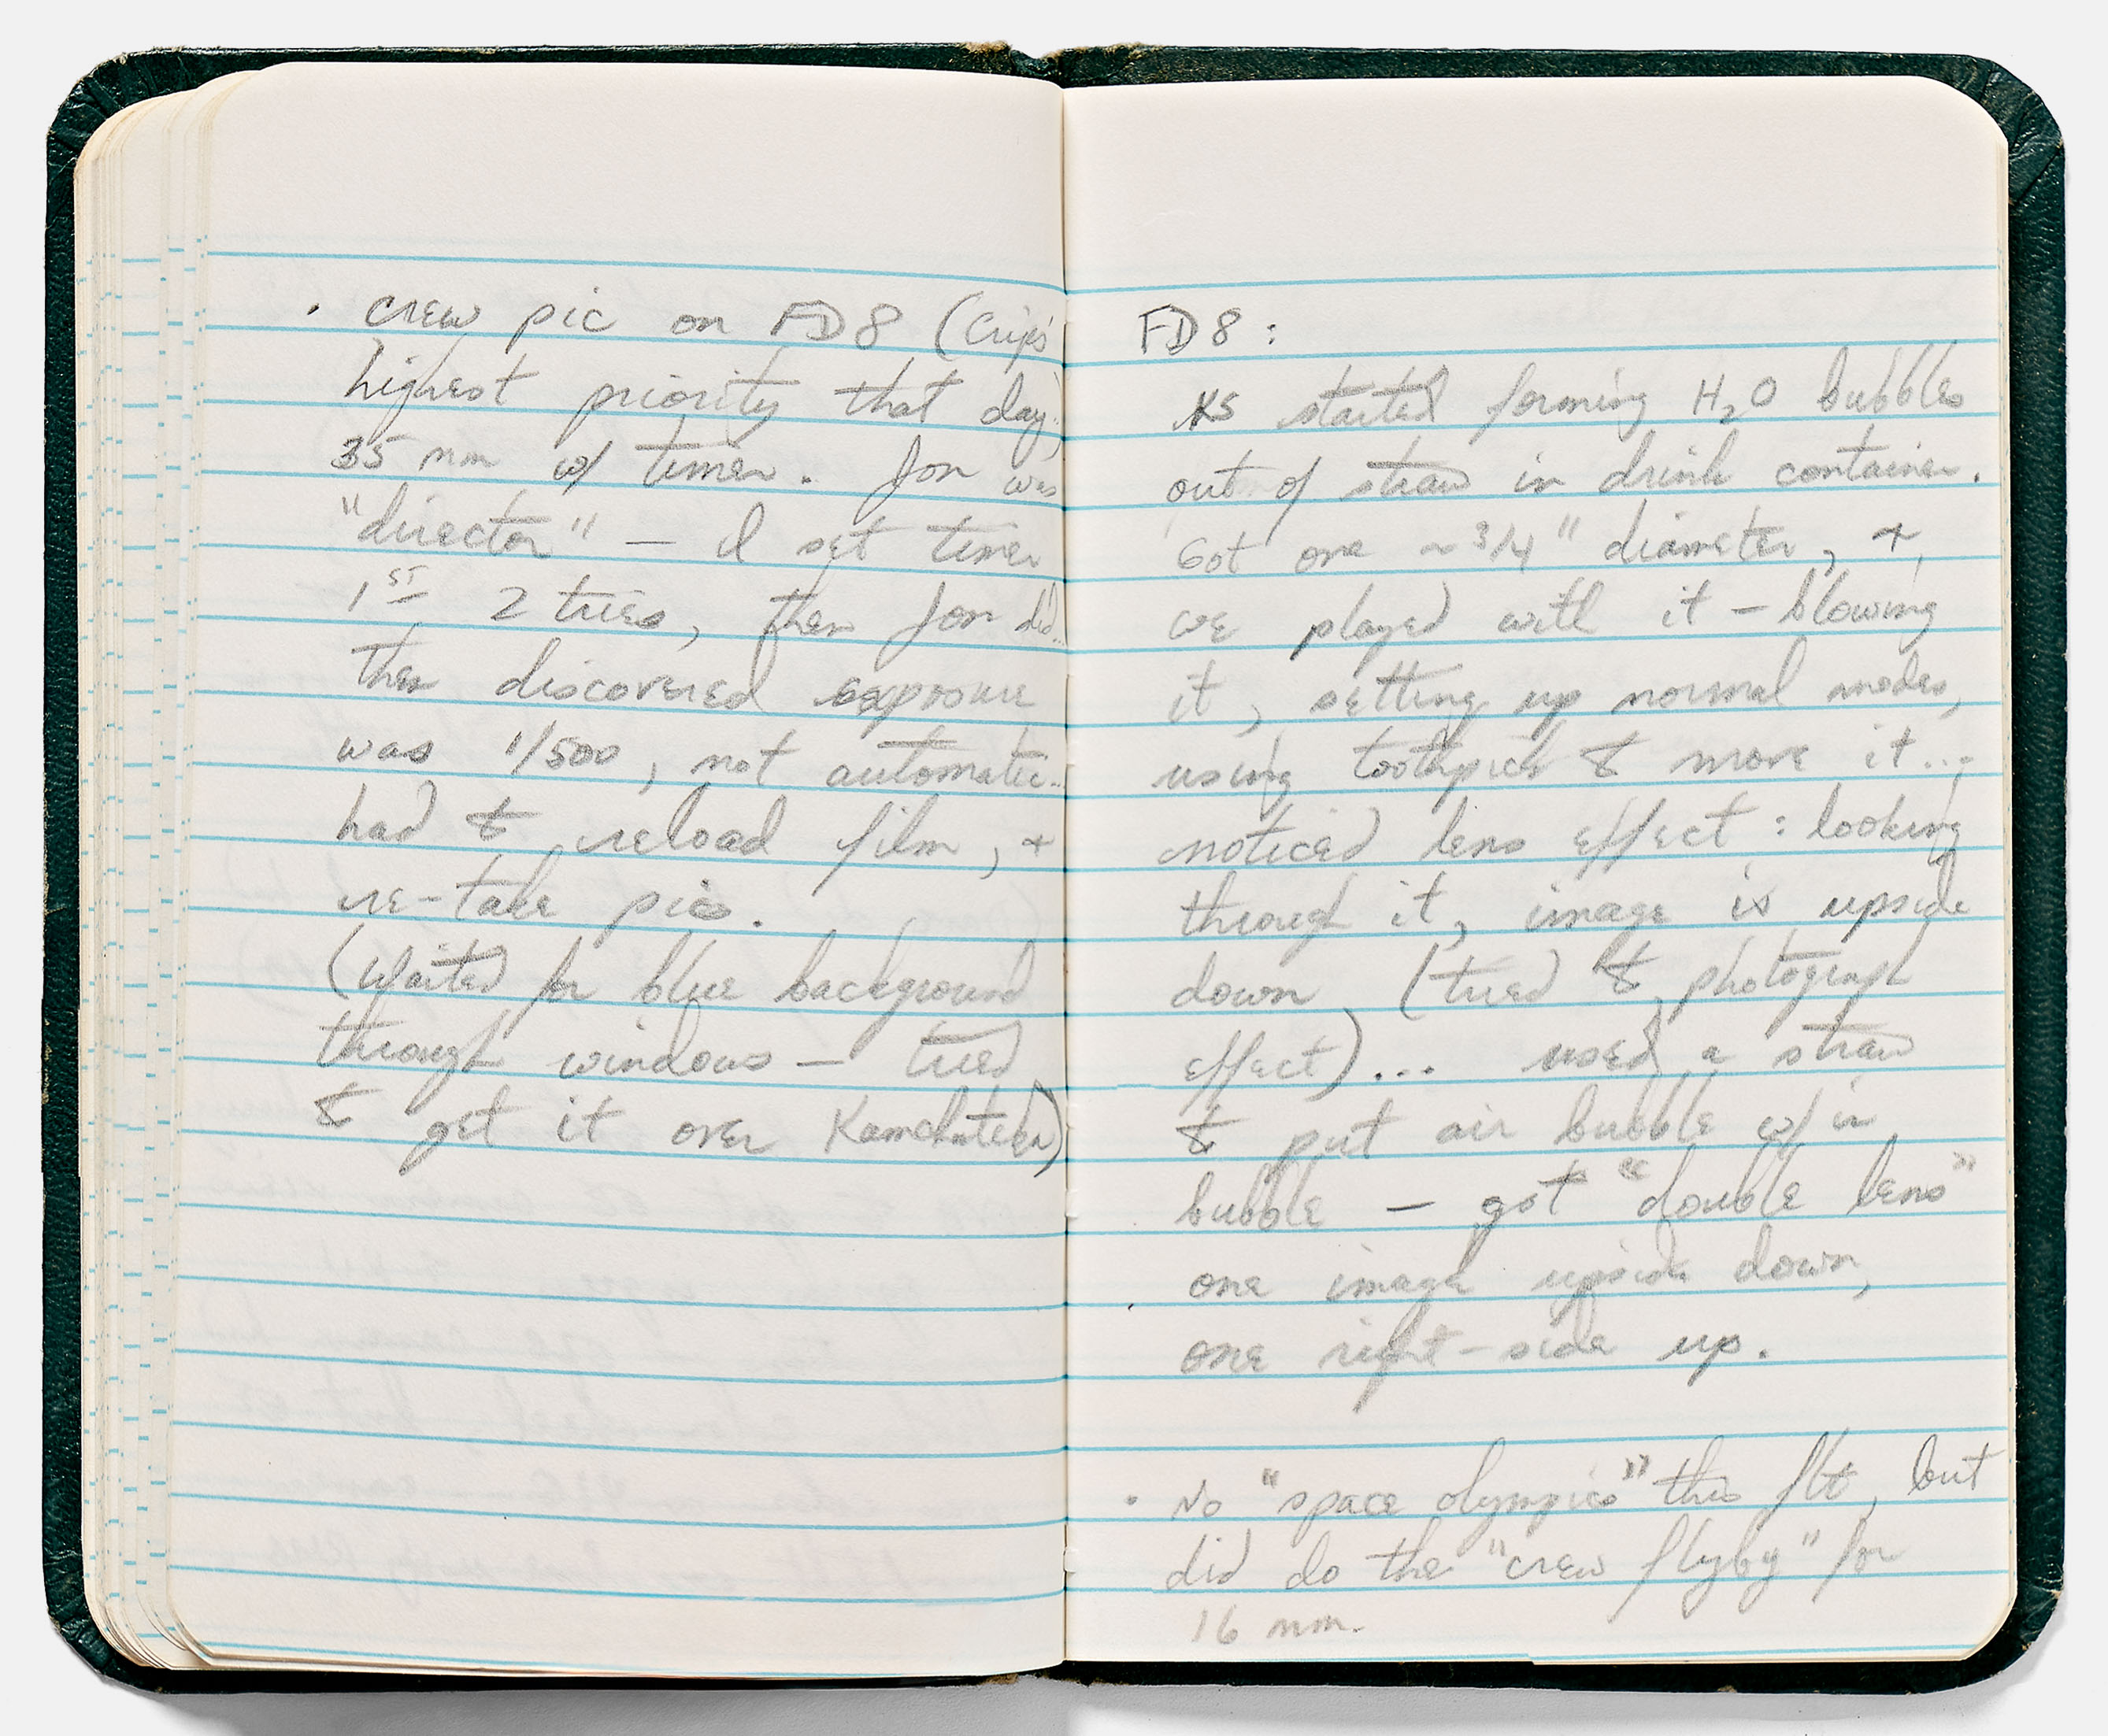 · crew pic on FD8 (Crip's
highest priority that day)
35 mm w/ timer. Jon was
"director" — I set timer
1ST 2 tries, then Jon did...
then discovered exposure
was 1/500, not automatic...
had to reload film, +
re-take pics.
(Waited for blue background
through windows — tried
to get it over Kamchatka)
FD8:
KS started forming H2O bubbles
out of straw in drink container.
Got one ~3/4" diameter, +
we played with it – blowing
it, setting up normal modes,
using toothpick to move it...
noticed lens effect: looking
through it, image is upside
down (tried to photograph
effect)... used a straw
to put air bubble w/in
bubble — got "double lens"
one image upside down,
one right-side up.
· No "space olympics" this flt, but
did do the "crew flyby" for
16 mm.